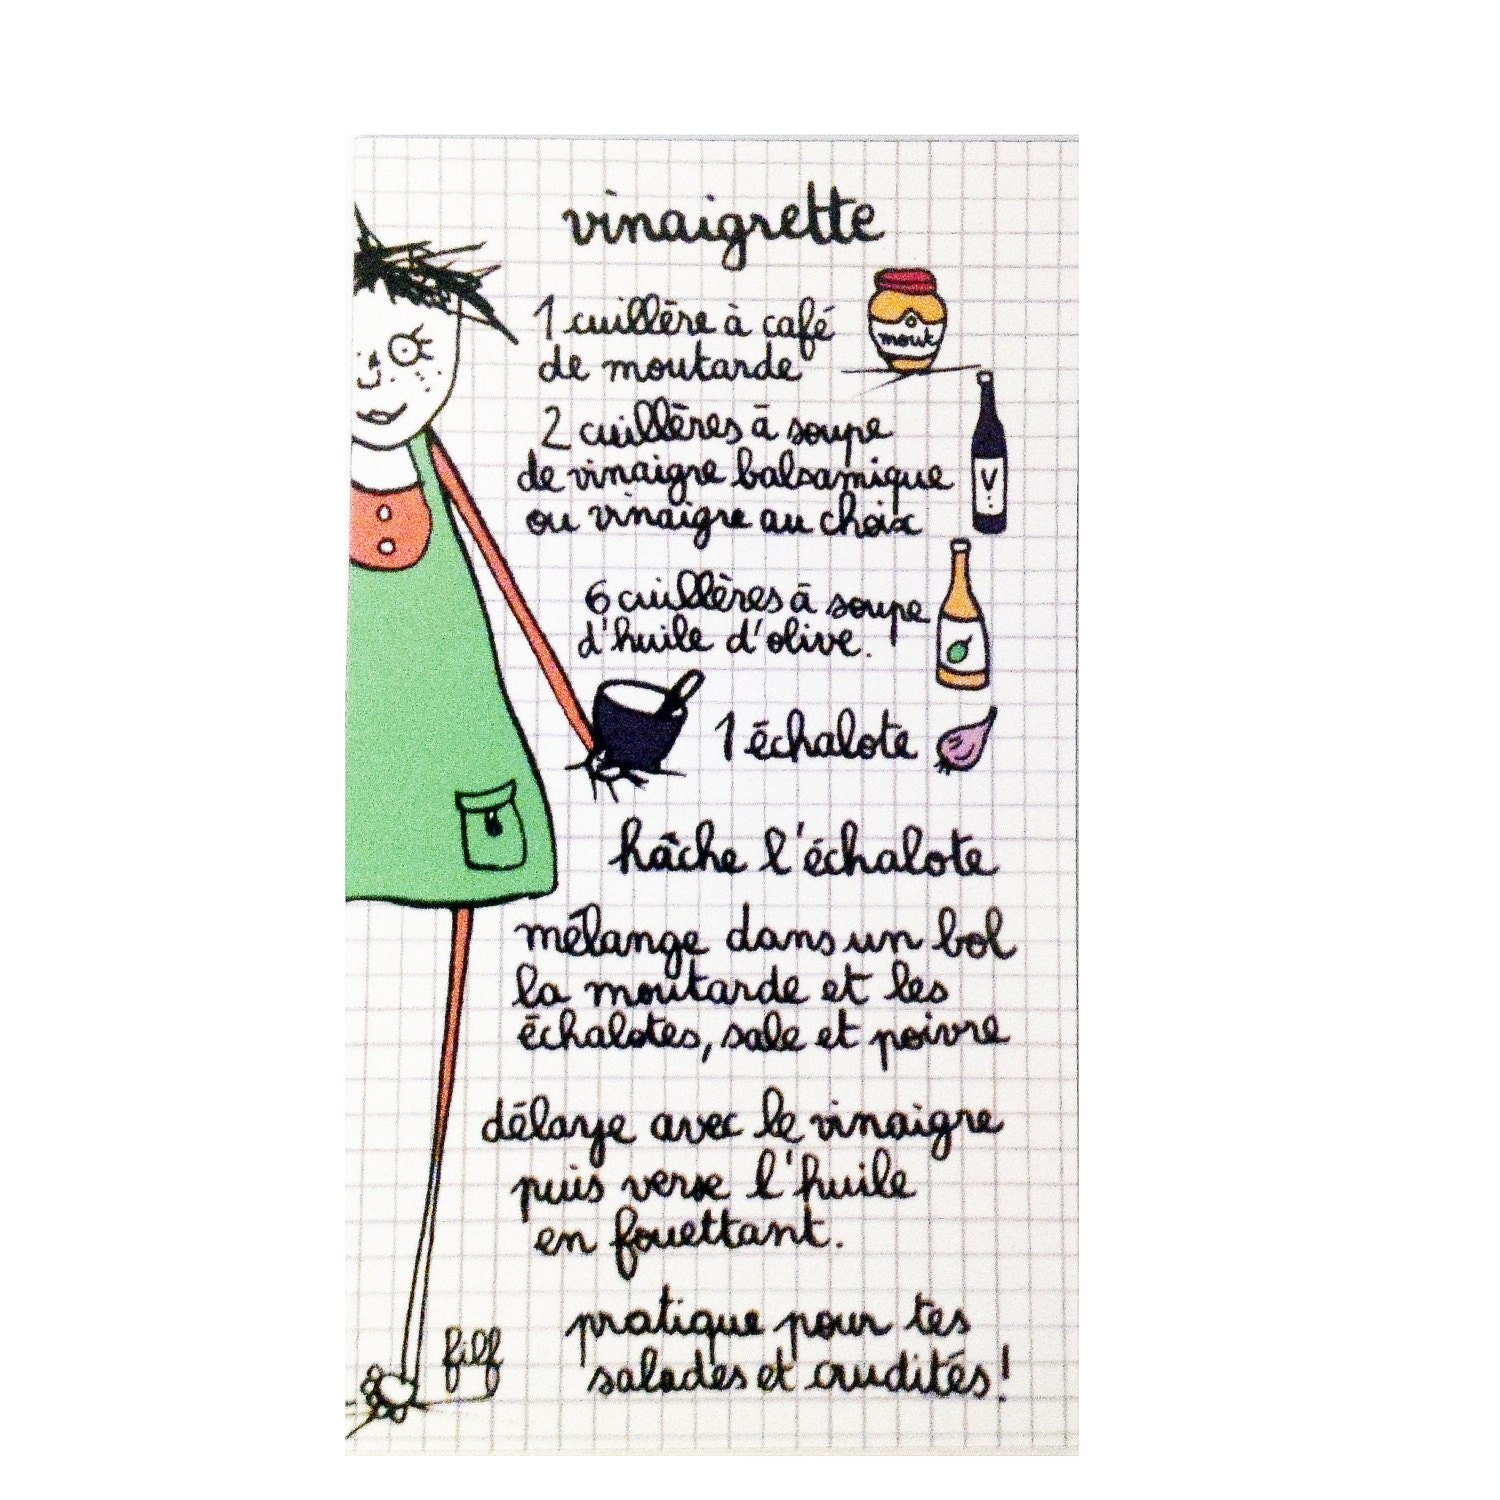 vinaigrette
1 cuillère à café
de moutarde
mout
2 cuillères à soupe
de vinaigre balsamique
ou vinaigre au choix
V
6 cuillères à soupe
d'huile d'olive.
1 échalote
hâche l'échalote
mélange dans un bol
la moutarde et les
échalotes, sale et poivre
délaye avec le vinaigre
puis verse l'huile
en fouettant.
pratique pour tes
salades et crudités!
filf